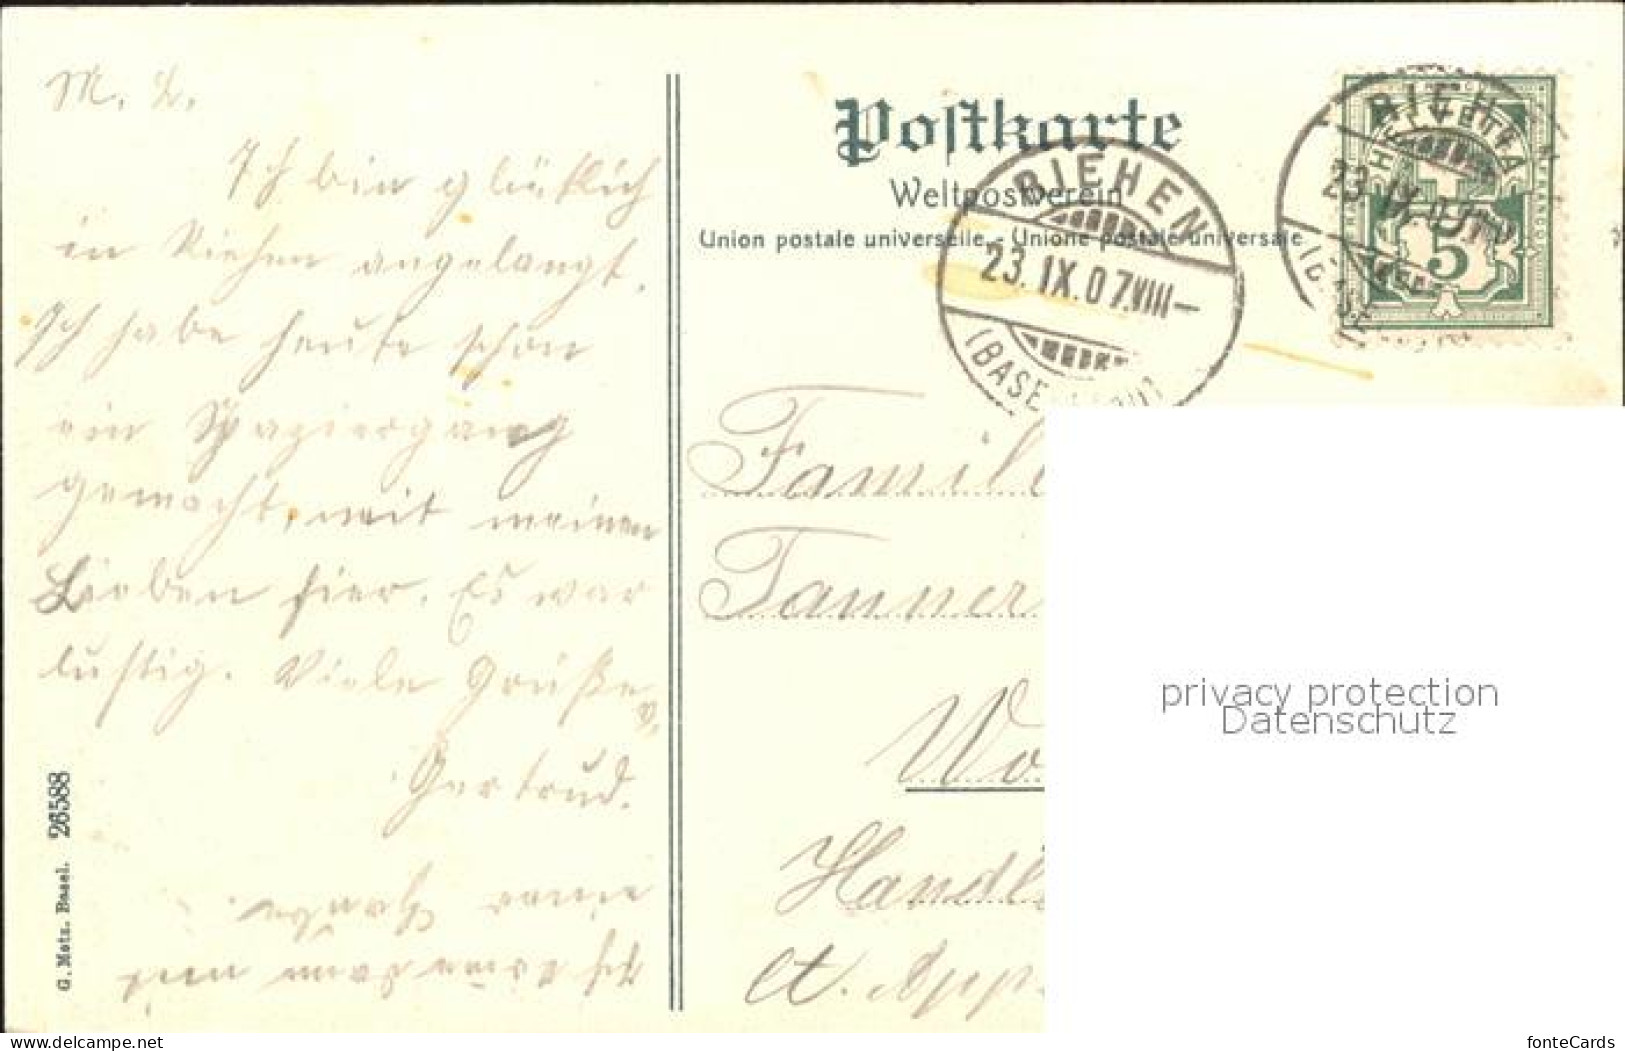 M. L.
Ich bin glücklich
in Riehen angelangt.
Ich habe heute schon
ein Spaziergang
gemacht, mit meinen
Lieben hier. Es war
lustig. Viele Grüße
v.
Gertrud.
einer
Ich dann mit
G. Metz. Basel. 26588
Postkarte
Weltpostverein
Union postale universelle. - Unione postale universale
RIEHEN
23. IX. 07. VIII-
(BASEL
RIEHEN
23. IX. 07
HELVETIA
FRANCO
5
Famil
Tanner
Wo
Handl
Ct. App
privacy protection
Datenschutz
www.delcampe.net
fonteCards